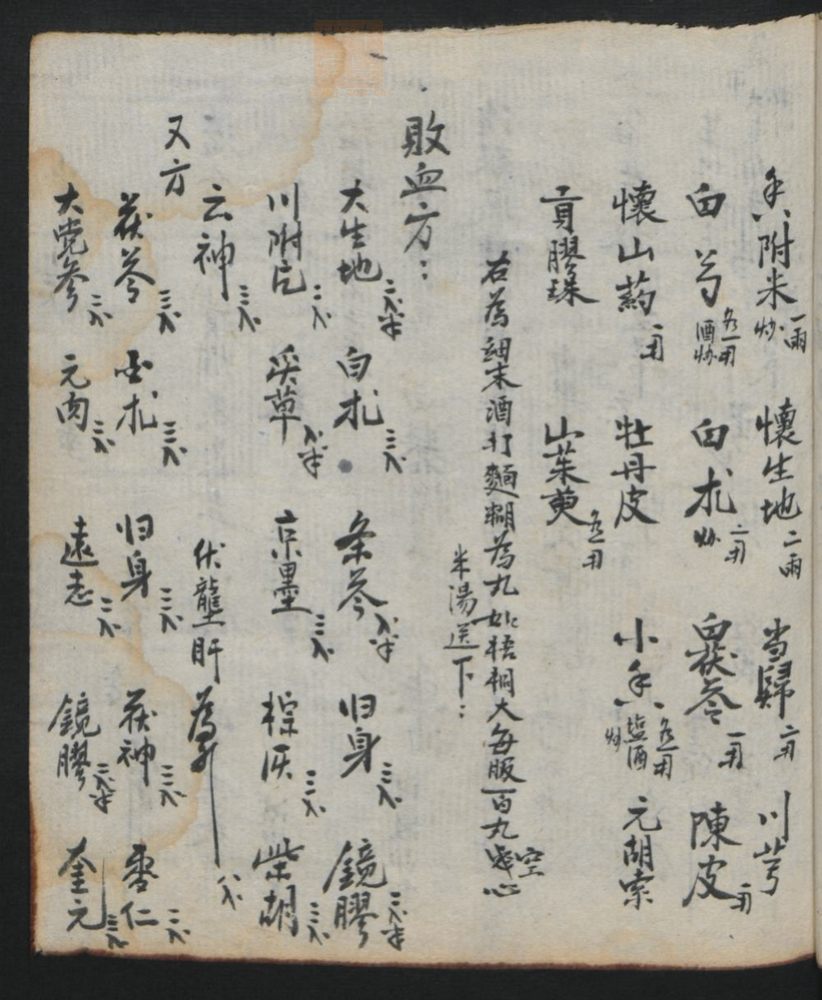 香附米一兩炒 懷生地二兩 当歸二兩 川芎
白芍各一兩酒炒 白朮二兩炒 白茯苓一兩 陳皮一兩
懷山药一兩 牡丹皮 小香各一兩塩酒炒 元胡索
貢膠珠 山茱萸各二兩
右為細末酒打麵糊為丸如梧桐大每服百丸空心
米湯送下:
敗血方:
大生地三錢半 白朮三錢 条參錢半 归身三錢 鏡膠三錢半
川附片二錢 炙草錢半 京墨三錢 棕灰三錢 柴胡三錢
云神三錢 伏龍肝為引 錢
又方
茯苓三錢 朮三錢 归身三錢 茯神三錢 枣仁二錢
大党參三錢 元肉三錢 遠志三錢 鏡膠二錢半 奎元三錢